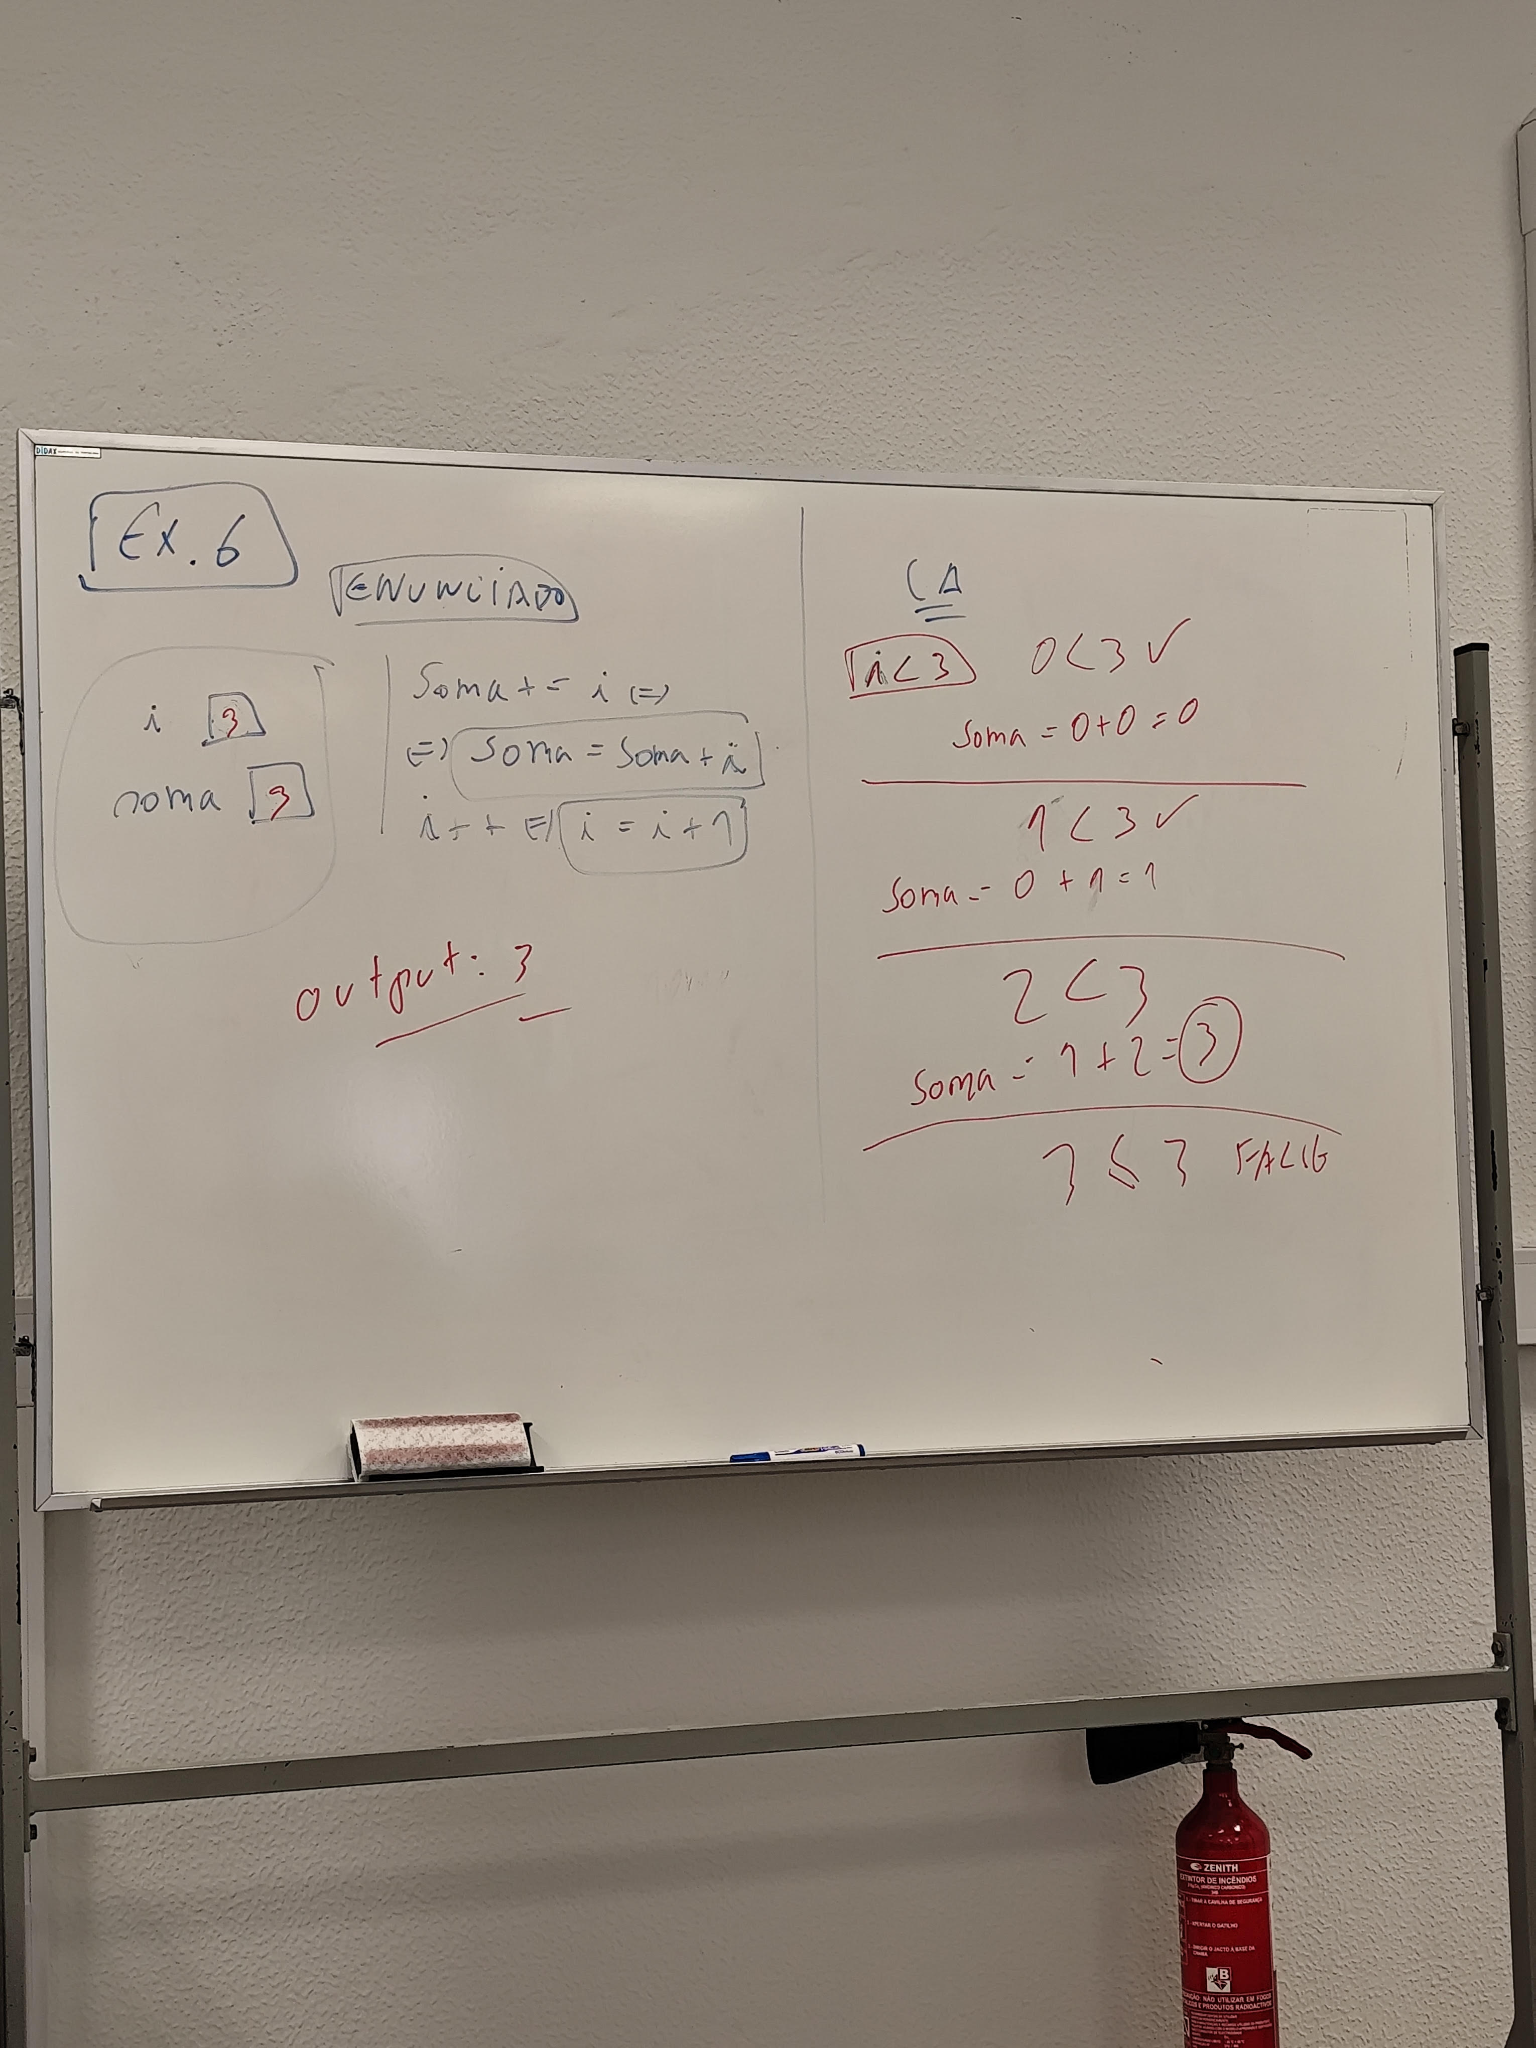 DIDAX
Ex. 6
ENUNCIADO
i 3
soma 3
Soma += i <=>
<=> Soma = Soma + i
i++ <=> i = i + 1
output: 3
CA
i < 3 0 < 3 ✓
Soma = 0 + 0 = 0
1 < 3 ✓
Soma = 0 + 1 = 1
2 < 3
Soma = 1 + 2 = 3
3 < 3
ZENITH
EXTINTOR DE INCÊNDIOS
1 - TIRAR A CAVILHA DE SEGURANÇA
2 - APERTAR O GATILHO
3 - DIRIGIR O JACTO À BASE DA
CHAMA
B
NÃO UTILIZAR EM FOGOS
E PRODUTOS RADIOACTIVOS